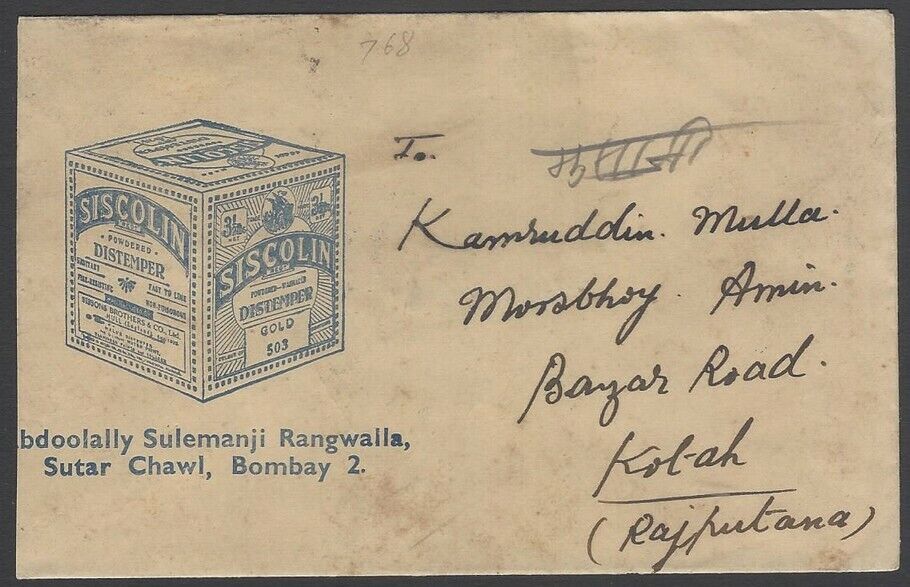 768
To.
Kamruddin. Mulla.
Morsbhoy. Amin.
Bazar Road.
Kotah
(Rajputana)
SISCOLIN
POWDERED
DISTEMPER
SANITARY
FIRE-RESISTING
EASY TO LIME
NON-POISONOUS
SISSONS BROTHERS & CO., Ltd.
HULL
3½
SISCOLIN
DISTEMPER
GOLD
503
bdoolally Sulemanji Rangwalla,
Sutar Chawl, Bombay 2.